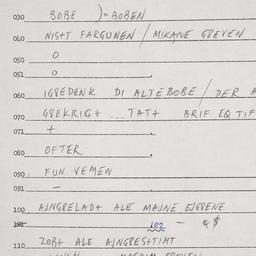 030 BOBE )= BOBEN
040 NIS+T FARGUNEN / MIKANE GREVEN
050 O
051 O
060 IGREDENK DI ALTE BOBE / DER
070 GREKRIG+ ... TAT+ BRIF EQ TIF
071 +
080 OFTER
090 FUN VEMEN
091 –
100 AJNGRELAD+ ALE MAJNE EJGRENE
102
110 ZOB+ ALE AJNGRES+TIMT